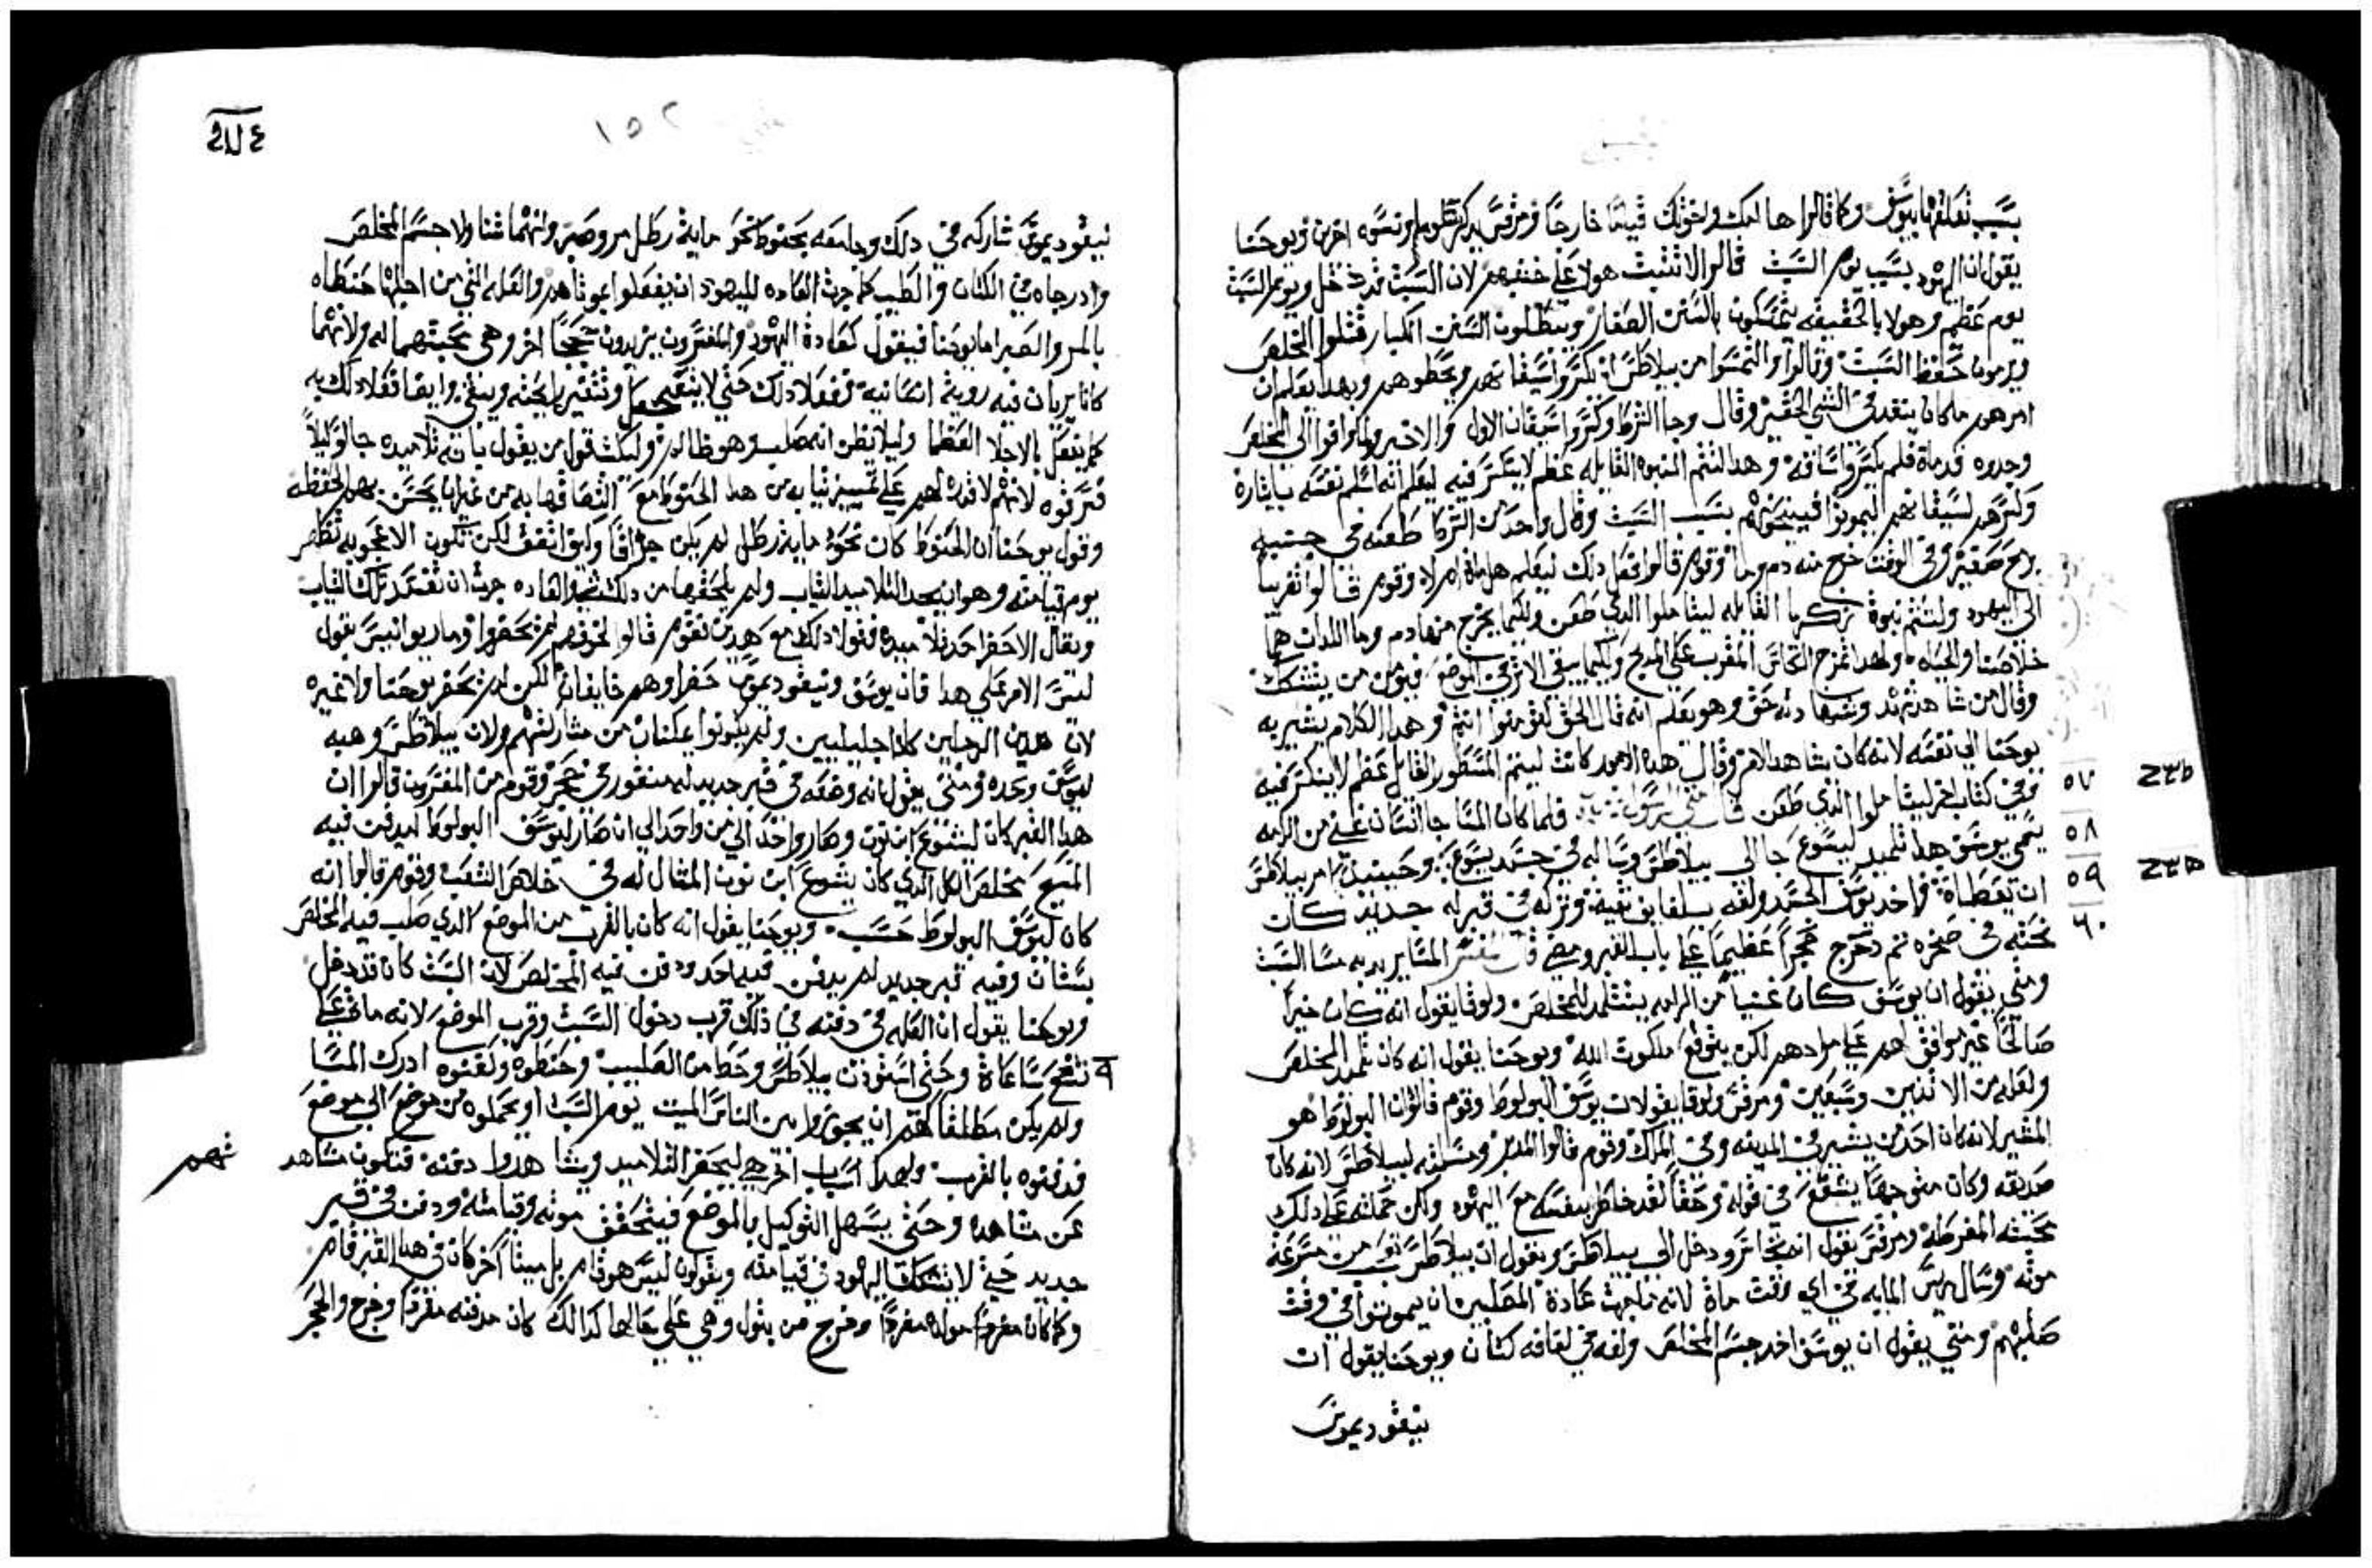 بسبب تعلقها بيوسف وكما قالوا ها امك واخوتك قيامًا خارجًا ومرقس يذكر سلومي ونسوه اخرين ويوحنا
يقول ان اليهود بسبب يوم السبت قالوا لا تتبث هولا على خشبهم لان السبت قد دخل ويوم السبت
يوم عظيم وهولا بالحقيقه يتمسكون بالسنن الصغار ويبطلون السنن الكبار قتلوا المخلص
ويرمون حفظ السبت وقالوا والتمسوا من بيلاطس ان يكسروا سيقانهم ويحطوهم وبهدا يعلم ان
امرهم ما كان ينفد في الشي الحقير وقال وجا الشرط وكسروا سيقان الاول والاخر ولما وافوا الى المخلص
وجدوه قد ماة فلم يكسروا ساقه وهدا لتتم النبوه القايله عظم لا ينكسر فيه ليعلم انه اسلم نفسه بايثاره
وكسرهم لسيقانهم ليموتوا بسبب السبت وقال واحد من الشرط طعنه في جنبه
برمح صغير وفي الوقت خرج منه دم وما وقوم قالوا فعل دلك ليعلم هل ماة ام لا وقوم قالوا تقربا
الى اليهود ولتتم نبوة زكريا القايله ليتاملوا الدي طعن ولكيما يخرج منها دم وما اللدان هما
خلاصنا والحياه ولهدا نمزج الكاس المقرب على المدبح ولكيما يبقى الاثر في الموضع فيومن من يتشكك
وقال من شاهد شهد وشهادته حق وهو يعلم انه قال الحق لتومنوا انتم وهدا الكلام يشير به
يوحنا الى نفسه لانه كان يشاهد الامر وقال هده الامور كانت ليتم المسطور القايل عظم لا ينكسر فيه
وفي كتاب اخر ليتاملوا الدي طعن قال متى الرسول فلما كان المسا جا انسان غني من الرامه
يسمى يوسف هدا تلميد ليسوع جا الى بيلاطس وساله في جسد يسوع وحينيد امر بيلاطس
ان يعطاه فاخد يوسف الجسد ولفه بلفايف نقيه وتركه في قبر له جديد كان
نحته في صخره تم دحرج حجراً عظيمًا على باب القبر ومضى قال المفسر المسا يريد به مسا السبت
ومتى يقول ان يوسف كان غنيا من الرامه يتتلمد للمخلص ولوقا يقول انه كان خيراً
صالحًا غير موافق لهم على مرادهم لكن يتوقع ملكوت الله ويوحنا يقول انه كان تلميد المخلص
ولعله من الاتنين وسبعين ومرقس ولوقا يقولان يوسف البولوطا وقوم قالوا ان البولوطا هو
المشير لانه كان احد من يشير في المدينه وفي الملك وقوم قالوا المدبر ومسلته لبيلاطس لانه كان
صديقه وكان متوجهًا يشفع في قوله وحقًا لقد خاطر بنفسه مع اليهود ولكن حملته على دلك
محبته المفرطه ومرقس يقول انه تجاسر ودخل الى بيلاطس ويقول ان بيلاطس تعجب من سرعة
موته وسال ريس المايه في اي وقت ماة لانه ما جرت عادة المصلبين ان يموتوا في وقت
صلبهم ومتى يقول ان يوسف اخد جسم المخلص ولفه في لفافه كتان ويوحنا يقول ان
نيقوديموس
٥٧
٥٨
٥٩
٦٠
١٥٢
نيقوديموس شاركه في دلك وجا معه بحنوط نحو ماية رطل مر وصبر وانهما تناولا جسم المخلص
وادرجاه في الكتان والطيب كما جرت العاده لليهود ان يفعلوا بموتاهم والعله التي من اجلها حنطاه
بالمر والصبر اما يوحنا فيقول كعادة اليهود والمفسرون يزيدون حججًا اخر وهي محبتهما له ولانهما
كانا يريان فيه روية انسانيه ففعلا دلك حتى لا وتتغير رايحته وينتن وايضا فعلا دلك به
كما يفعل بالاجلا العظما وليلا يظن انه صلب وهو ظالم وليكدب قول من يقول بان تلاميده جا لوا ليلاً
فسرقوه لانهم لا قدره لهم على تمييز تيابه من هدا الحنوط مع التصاقها به من غير ان يحس بهم الحفظه
وقول يوحنا ان الحنوط كان نحو ماية رطل لم يكن جزافًا وكيف اتفق لكن لتكون الاعجوبه تظهر
يوم قيامته وهو ان يجد التلاميد التياب ولم يلحقها من دلك العاده جرت ان تفسد تلك التياب
ويقال الا حضر احد تلاميده فتولا دلك مع هدين فقوم قالوا لخوفهم لم يحضروا وماريوانيس يقول
ليس الامر على هدا فان يوسف ونيقوديموس حضرا وهم خايفان لكن لم يحضر يوحنا ولا غيره
لان هدين الرجلين كانا جليليين ولم يكونوا يمكنان من مشاركتهم ولان بيلاطس وهبه
ليوسف وحده ومتى يقول انه وضعه في قبر جديد له منقور في حجر وقوم من المفسرين قالوا ان
هدا القبر كان ليشوع ابن نون وصار واحد الى من واحد الى ان صار ليوسف البولوطا ليدفن فيه
المسيح مخلص الكل الدي كان يشوع ابن نون المتال له في خلاص الشعب وقوم قالوا انه
كان ليوسف البولوطا حسب ويوحنا يقول انه كان بالقرب من الموضع الدي صلب فيه المخلص
بستان وفيه قبر جديد لم يدفن فيه احد ودفن فيه المخلص لان السبت كان قد دخل
ويوحنا يقول ان العله في دفنه في دلك قرب دخول السبت وقرب الموضع لانه مات على
تسع ساعاة وحتى استودن بيلاطس وحط من الصليب وحنطوه ولفوه ادرك المسا
ولم يكن مطلقا لهم ان يجوزوا بين الناس الميت يوم السبت او يحملوه من موضع الى موضع
فدفنوه بالقرب ولهدا اسباب اخر هي ليحضر التلاميد ويشاهدوا دفنه فتكون مشاهد
عن مشاهده وحتى يسهل التوكيل بالموضع فيتحقق موته وقيامته ودفن في قبر
جديد حتى لا يتشكك اليهود في قيامته ويقولون ليس هو قام بل ميتاً اخر كان في هدا القبر قام
وكما كان مفرداً مولده مفرداً وخرج من بتول وهي على حالها كدالك كان مدفنه مفردًا وخرج والحجر